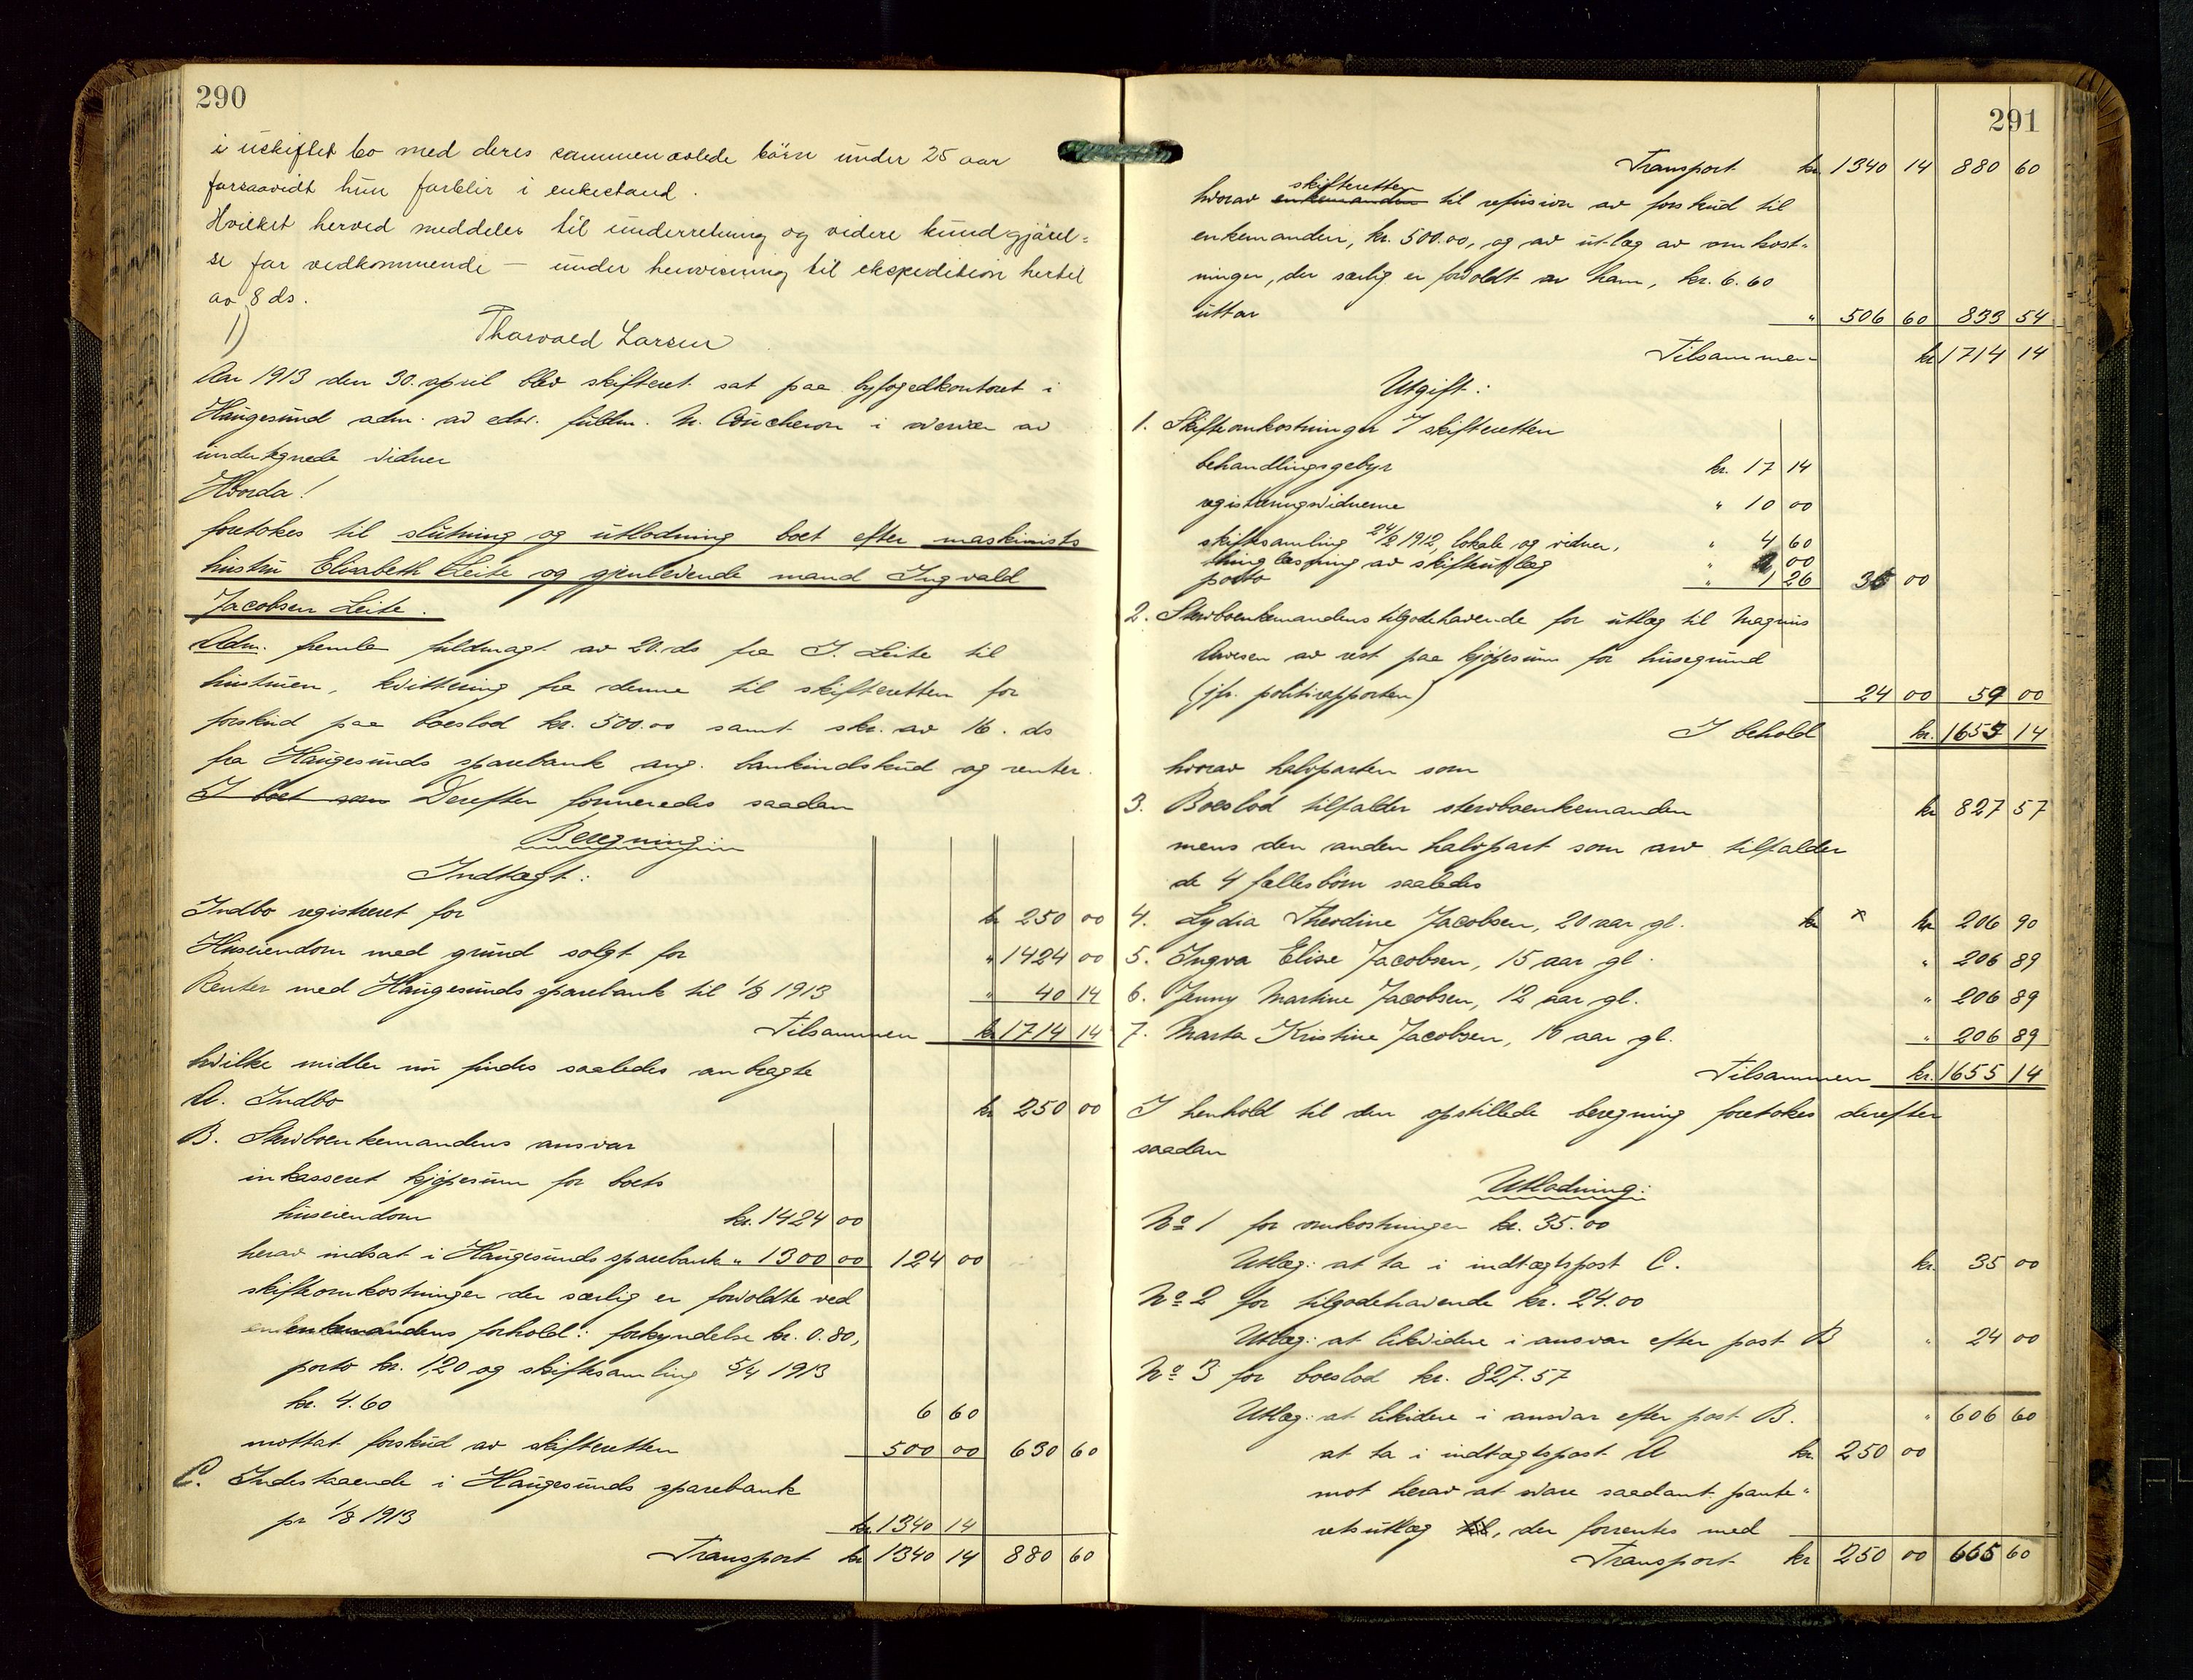 290
i uskiftet bo med deres sammenavlede börn under 25 aar
forsaavidt hun forblir i enkestand.
Hvilket herved meddeles til underretning og videre kundgjörel=
se for vedkommende — under henvisning til ekspedition hertil
av 8 ds.
1) Thorvald Larsen
Aar 1913 den 30. april blev skifteret sat paa byfogedkontoret i
Haugesund adm. av edsv. fuldm. N. Coucheron i nærvær av
undertegnede vidner
Hvorda!
foretokes til slutning og utlodning boet efter maskinists
hustru Elisabeth Leite og gjenlevende mand Ingvald
Jacobsen Leite.
Adm. fremla fuldmagt av 20. ds fra I. Leite til
hustruen, kvittering fra denne til skifteretten for
forskud paa boeslod kr. 500.00 samt skr. av 16. ds
fra Haugesunds sparebank ang. bankindskud og renter.
I boet som Derefter formeredes saadan
Beregning:
Indtægt:
Indbo registreret for kr 250 00
Huseiendom med grund solgt for " 1424 00
Renter med Haugesunds sparebank til 1/8 1913 " 40 14
Tilsammen kr 1714 14
hvilke midler nu findes saaledes anbragte
A. Indbo kr 250 00
B. Stervboenkemandens ansvar
inkasseret kjøpesum for boets
huseiendom kr. 1424 00
herav indsat i Haugesunds sparebank " 1300 00 124 00
skifteomkostninger der særlig er forvoldte ved
enkemandens forhold: forkyndelse kr. 0.80,
porto kr. 1,20 og skiftesamling 5/4 1913
kr. 4.60 6 60
mottat forskud av skifteretten 500 00 630 60
C. Indestaaende i Haugesunds sparebank
pr 1/8 1913 kr 1340 14
Transport kr 1340 14 880 60
291
Transport kr 1340 14 880 60
skifteretten
hvorav enkemanden til refusion av forskud til
enkemanden, kr. 500.00, og av utlæg av omkost-
ninger, der særlig er forvoldt av ham, kr. 6.60
uttar " 506 60 833 54
Tilsammen kr 1714 14
Utgift:
1. Skifteomkostninger i skifteretten
behandlingsgebyr kr. 17 14
registreringsvidnerne " 10 00
skiftesamling 24/2 1912, lokale og vidner, " 4 60
thinglæsning av skifteutlæg " 2 00
porto " 1 26 35 00
2. Stervboenkemandens tilgodehavende for utlæg til Magnus
Andresen av rest paa kjøpesum for husegrund
(jfr. politirapporten) 24 00 59 00
I behold kr. 1655 14
hvorav halvparten som
3. Boeslod tilfalder stervboenkemanden kr 827 57
mens den anden halvpart som arv tilfalder
de 4 fællesbörn saaledes
4. Lydia Theodine Jacobsen, 20 aar gl. kr x kr 206 90
5. Ingva Elise Jacobsen, 15 aar gl. " 206 89
6. Jenny Martine Jacobsen, 12 aar gl. " 206 89
7. Marta Kristine Jacobsen, 10 aar gl. " 206 89
Tilsammen kr. 1655 14
I henhold til den opstillede beregning foretokes derefter
saadan
Utlodning:
No 1 for omkostninger kr. 35.00
Utlæg: at ta i indtægtspost C. kr. 35 00
No 2 for tilgodehavende kr. 24.00
Utlæg: at likvidere i ansvar efter post B " 24 00
No 3 for boeslod kr. 827.57
Utlæg: at likvidere i ansvar efter post B. " 606 60
at ta i indtægtspost A kr 250 00
mot herav at svare saadant pante-
retsutlæg til, der forrentes med
Transport kr 250 00 665 60